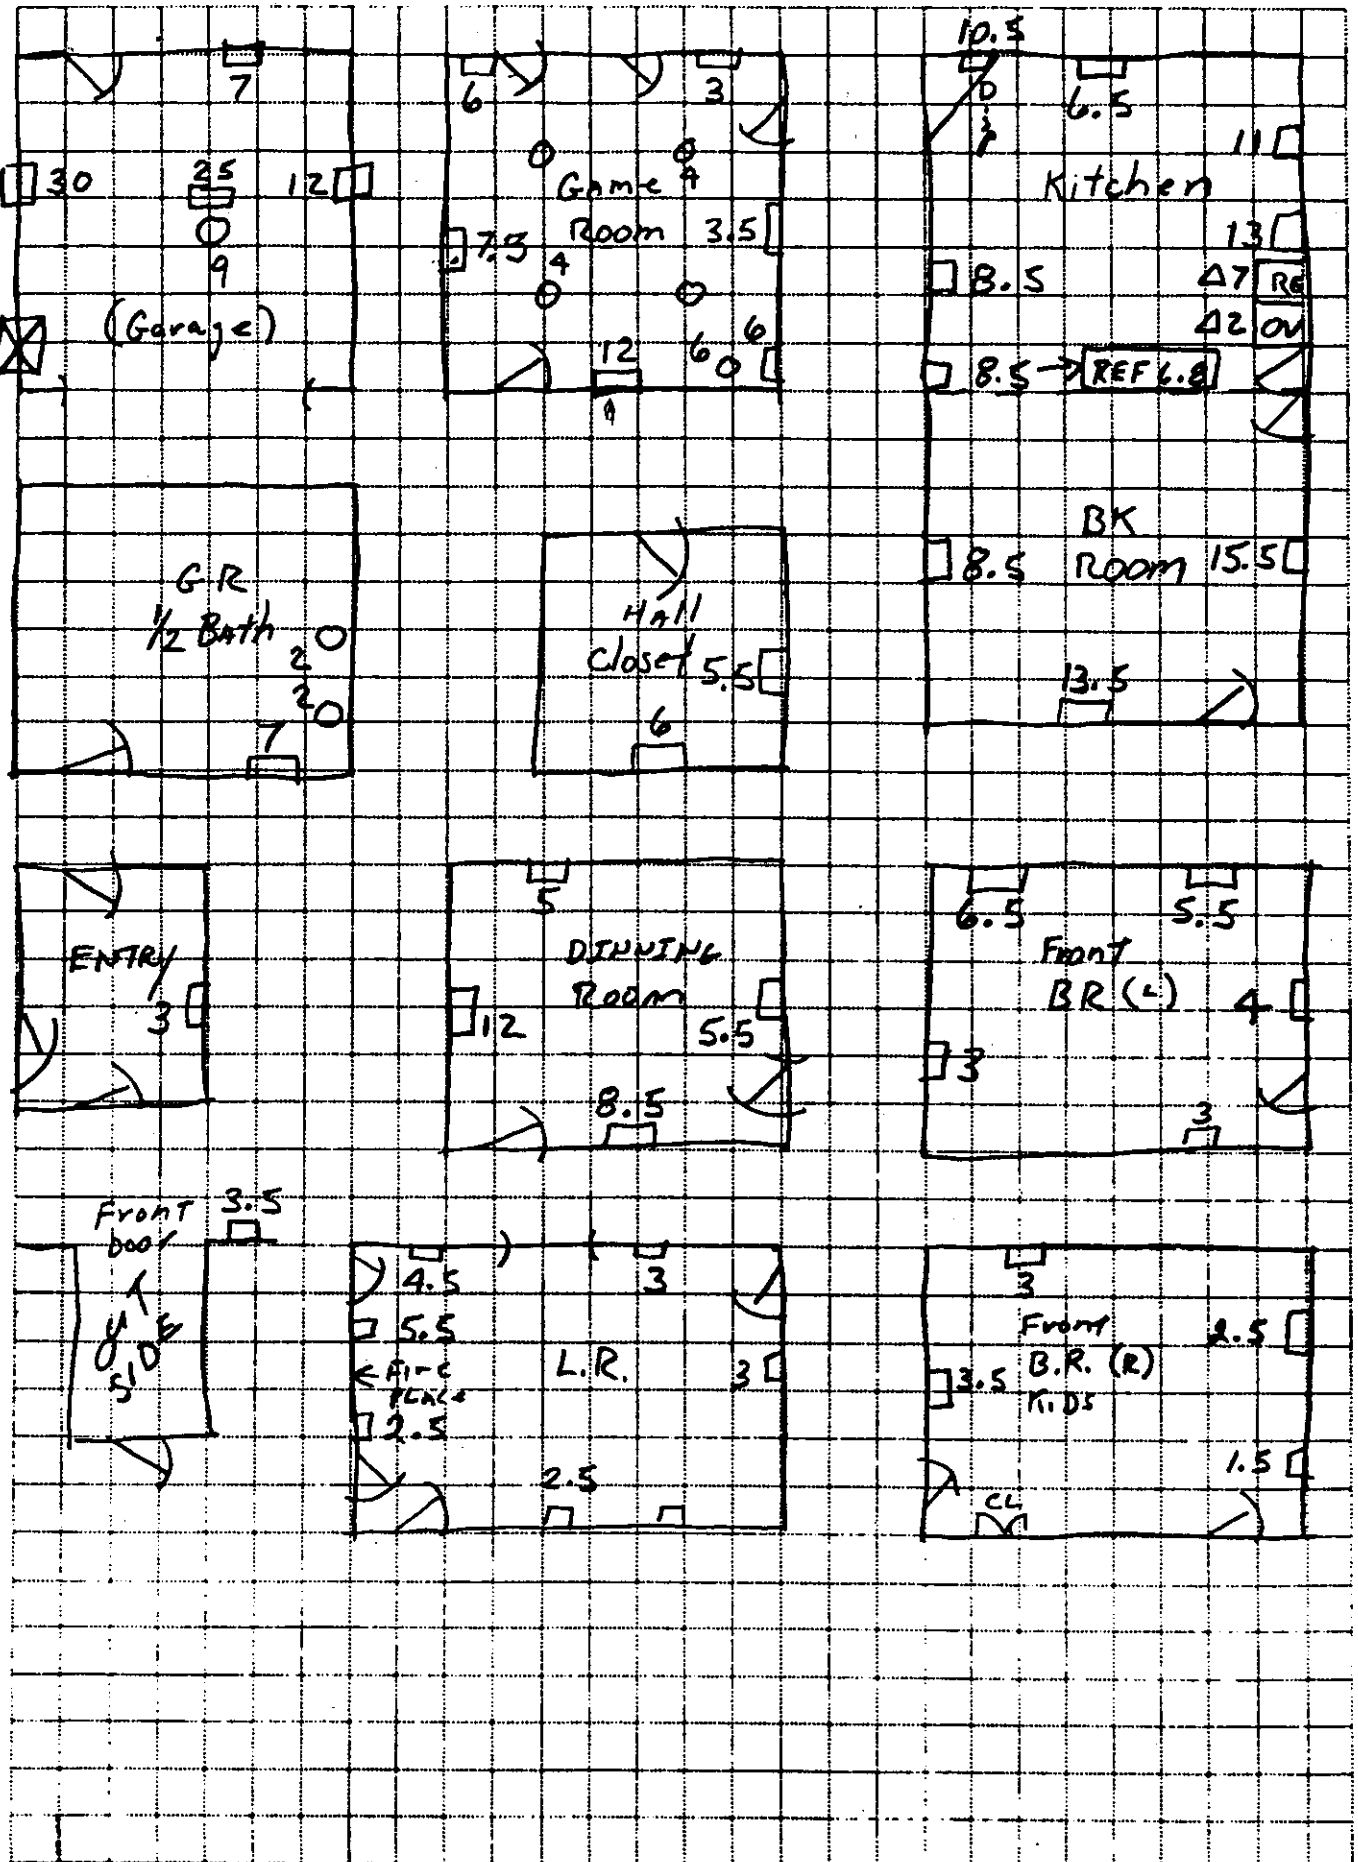 7
30
25
12
9
(Garage)
6
3
4
Game
Room
7.5
3.5
4
12
6
6
10.5
6.5
11
Kitchen
13
8.5
Δ7 RE
Δ2 OV
8.5 → REF 6.8
BK
Room
8.5
15.5
13.5
GR
1/2 Bath
2
2
7
HAll
Closet
5.5
6
ENTRY
3
5
DINNING
Room
12
5.5
8.5
6.5
5.5
Front
BR (L)
4
3
3
Front
Door
3.5
SIDE
4.5
3
5.5
L.R.
3
← Fire
PLACE
2.5
2.5
3
Front
B.R. (R)
KIDS
2.5
3.5
1.5
CL